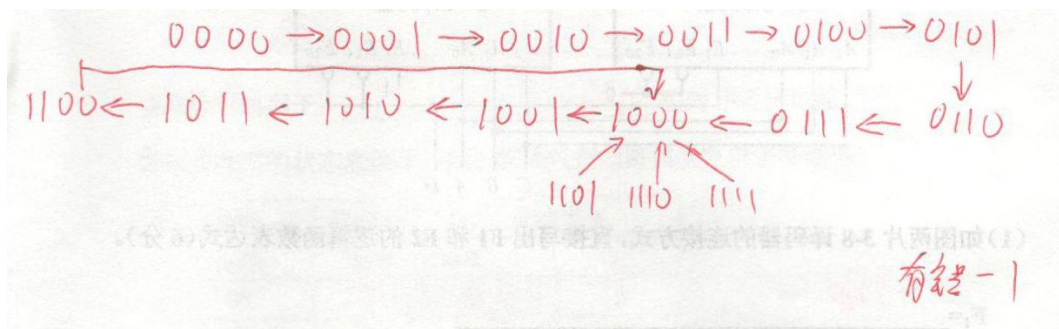 0000 → 0001 → 0010 → 0011 → 0100 → 0101
1100 ← 1011 ← 1010 ← 1001 ← 1000 ← 0111 ← 0110
1101 1110 1111
有错-1